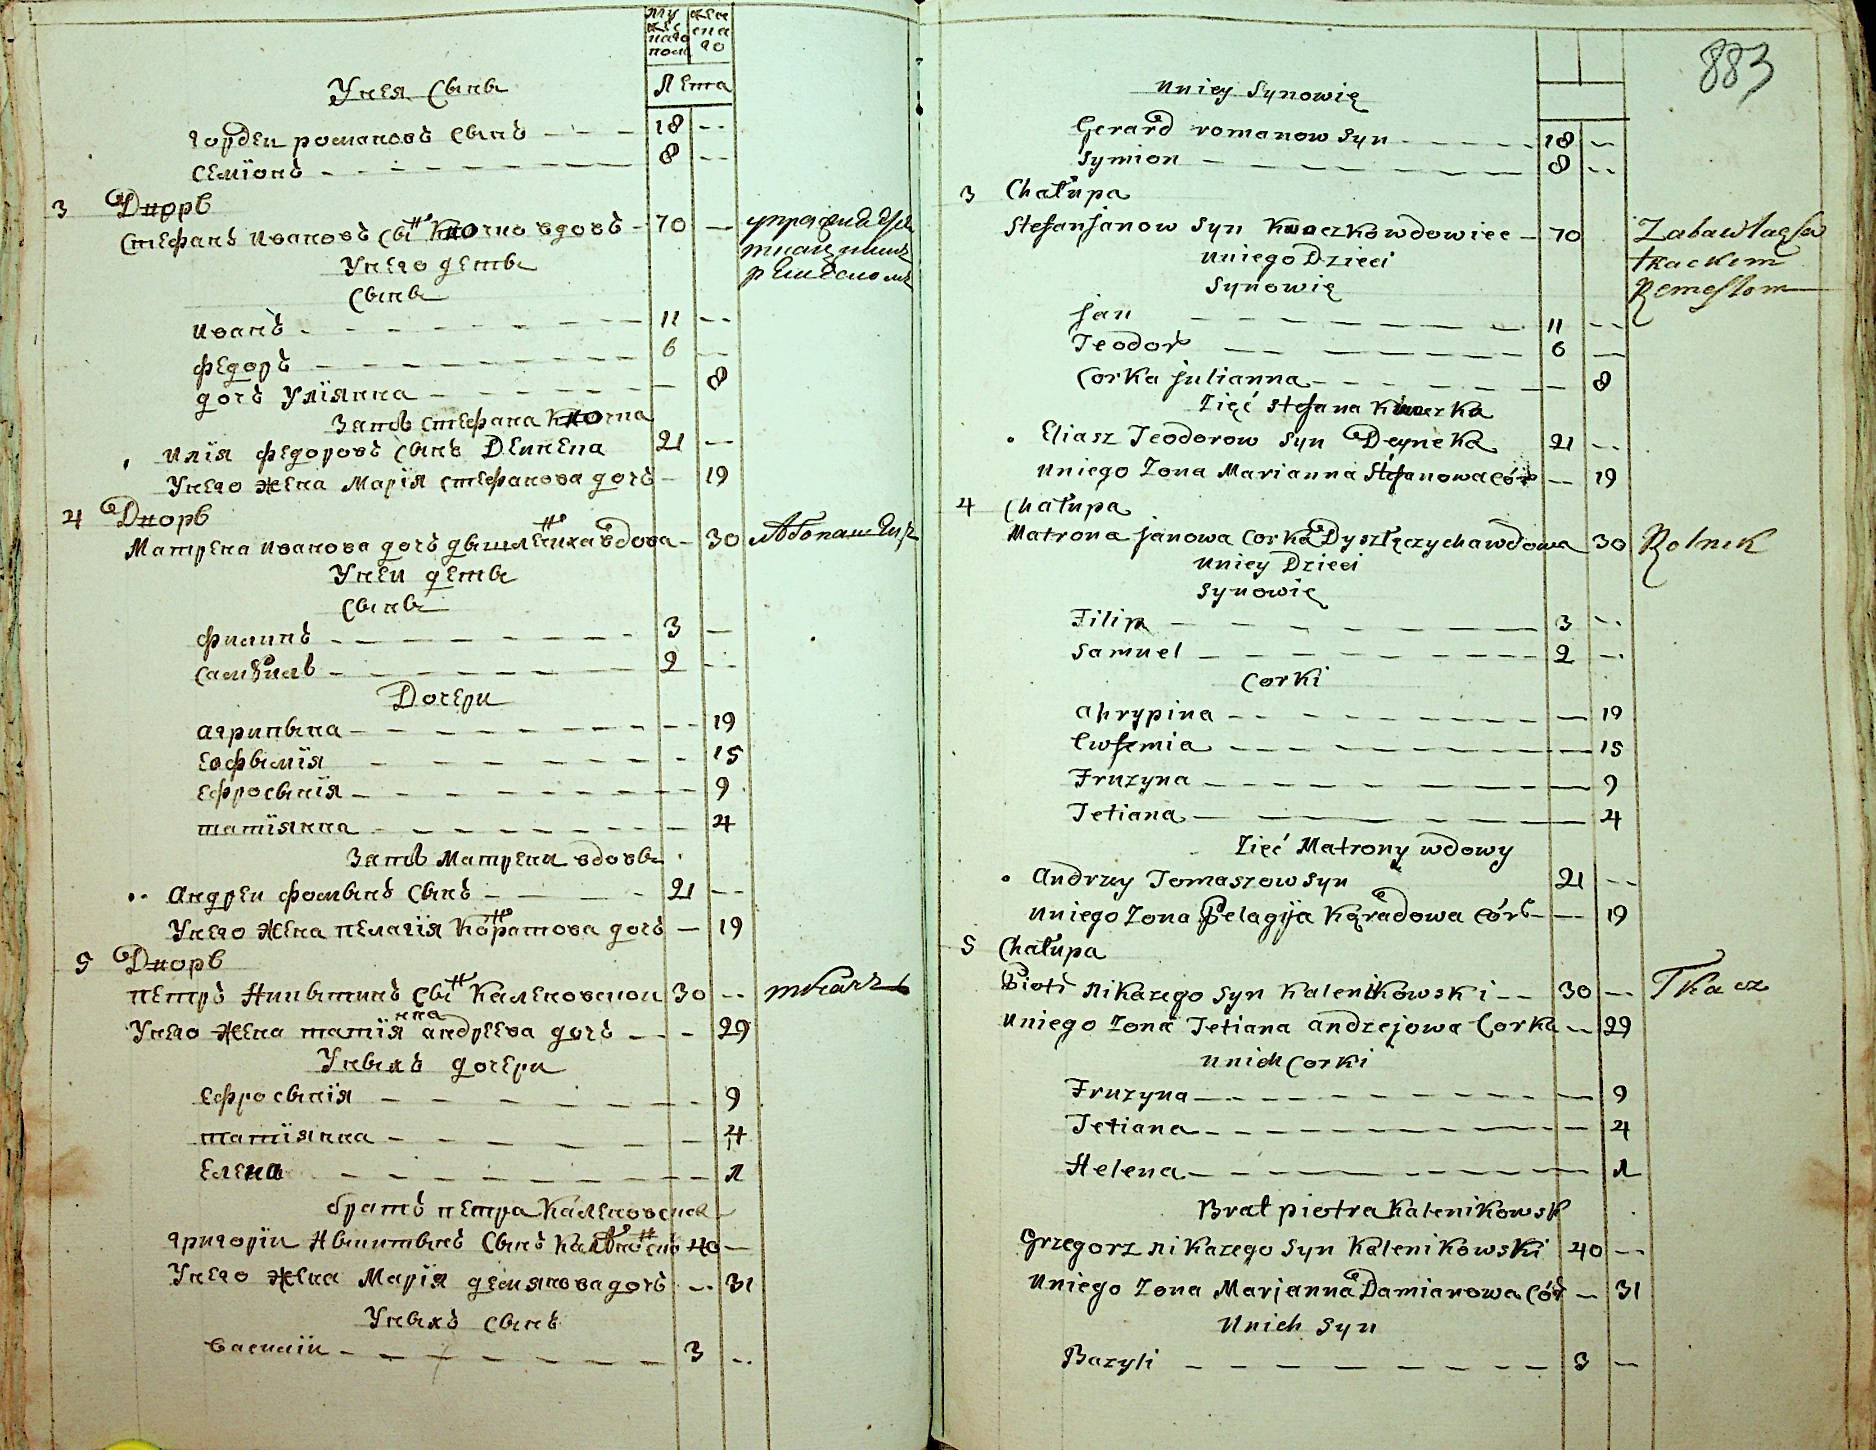 му
жес
каго
полу
жен
ска
го
Лета
Унея Сыны
гордеи романовъ сынъ 18
семїонъ 8
3 Дворъ
Стефанъ ивановъ сынъ вдовъ 70
Унего дети
Сыны
иванъ 11
федоръ 6
дочъ Улїянна 8
Зять стефана
илїя федоровъ сынъ Деинека 21
Унего жена Марїя стефанова дочъ 19
4 Дворъ
Матрена иванова дочъ вдова 30
Унеи дети
Сыны
филипъ 3
самуилъ 2
Дочери
агрипына 19
евфымїя 15
ефросынїя 9
татїянна 4
Зять Матрены вдовы
Андреи фомынъ сынъ 21
Унего жена пелагїя Коратова дочъ 19
5 Дворъ
петръ Никытинъ сынъ Каленковскои 30 ткачъ
Унего жена татїянна андреева дочъ 29
Уныхъ дочери
ефросынїя 9
татїянна 4
Елена 1
братъ петра
григорїи сынъ 40
Унего жена Марїя демянова дочъ 31
Уныхъ сынъ
василїи 3
883
Uniey Synowię
Gerard romanow Syn 18
Symion 8
3 Chałupa
Stefan Janow Syn wdowiec 70 Zabawiaę Sa
tkackim
Rzemesłom
Uniego Dzieci
Synowię
Jan 11
Teodor 6
Corka Julianna 8
Zięć Stefana
Eliasz Teodorow Syn Deyneka 21
Uniego Zona Marianna Stefanowa Cór 19
4 Chałupa
Matrona Janowa Corka Dyszlęczycha wdowa 30 Rolnik
Uniey Dzieci
Synowię
Filip 3
Samuel 2
Corki
Ahrypina 19
Ewfemia 15
Fruzyna 9
Tetiana 4
Zięć Matrony wdowy
Andrzy Tomaszow Syn 21
Uniego Zona Pelagija Kąradowa Cór 19
5 Chałupa
Piotr Nikazego Syn Kalenikowski 30 Tkacz
Uniego Zona Tetiana Andzejowa Corka 29
Unich Corki
Fruzyna 9
Tetiana 4
Helena 1
Brat piotra Kalenikowsk
Grzegorz Nikazego Syn Kalenikowski 40
Uniego Zona Marjanna Damianowa Cór 31
Unich Syn
Bazyli 3